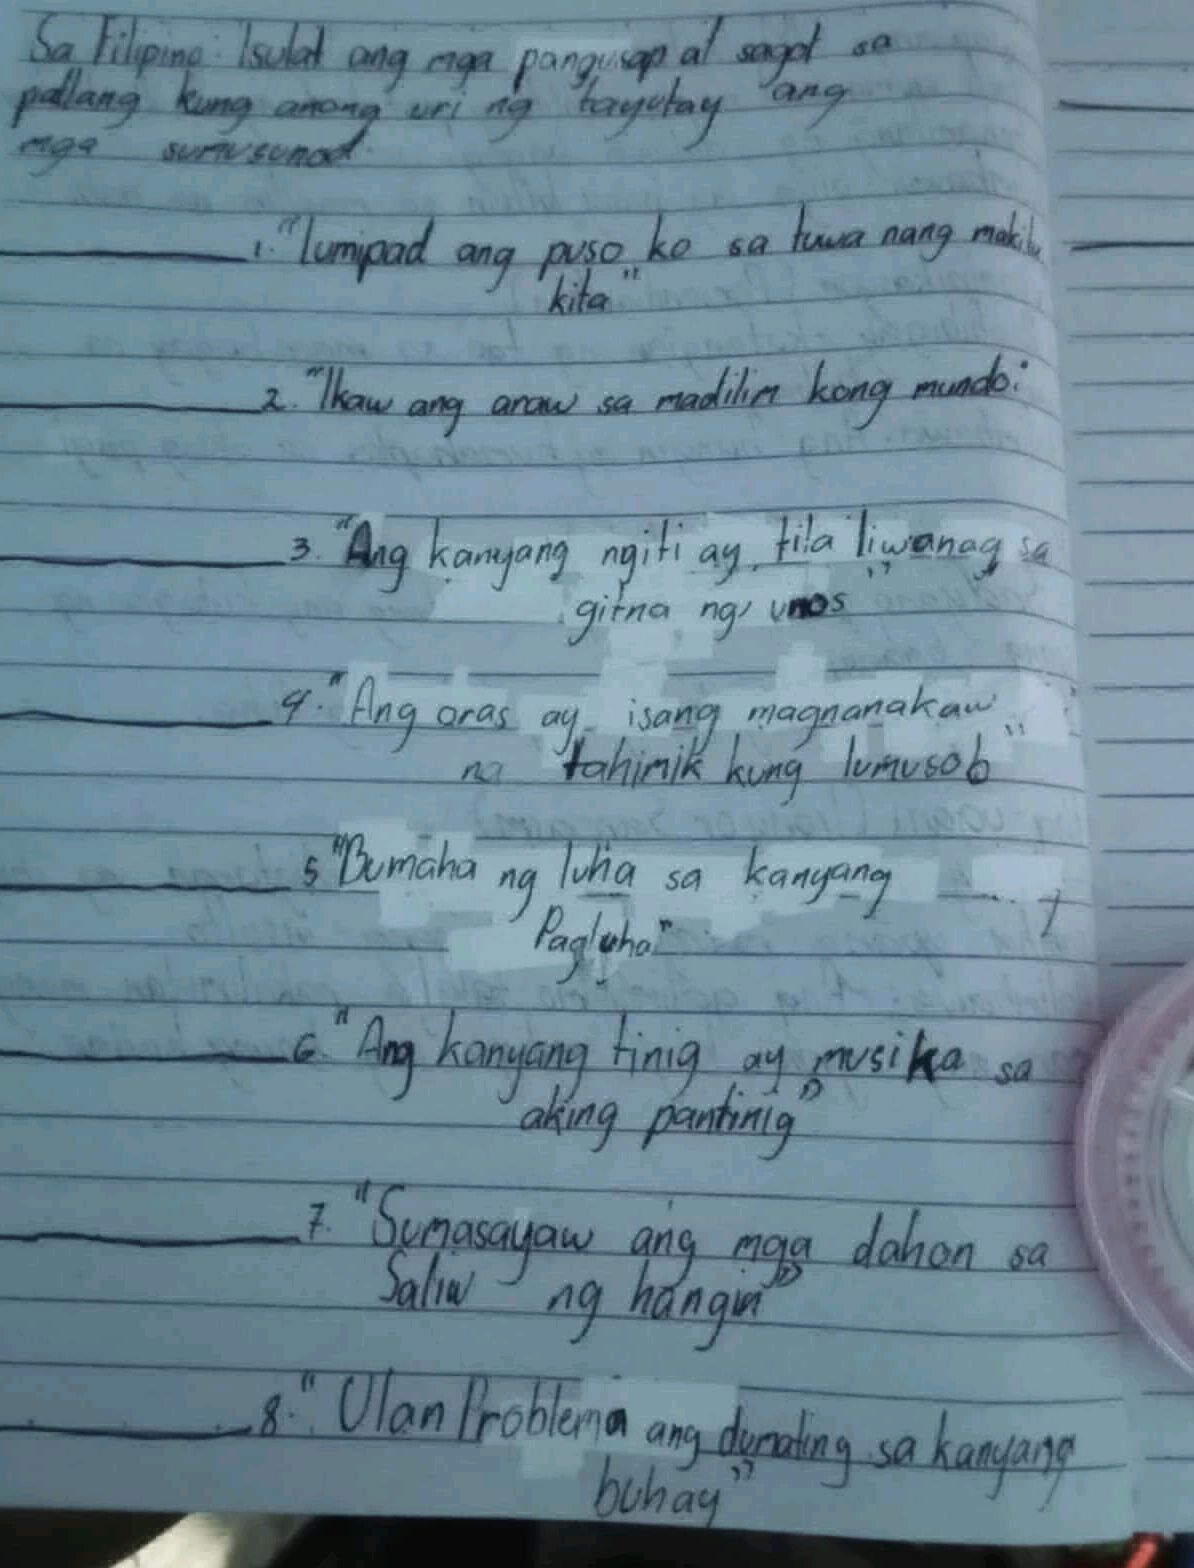 Sa Filipino: Isulat ang mga pangusap at sagot sa
patlang kung anong uri ng tayutay ang
mga sumusunod
1. "lumipad ang puso ko sa tuwa nang makita
kita"
2. "Ikaw ang araw sa madilim kong mundo."
3. "Ang kanyang ngiti ay tila liwanag sa
gitna ng unos"
4. "Ang oras ay isang magnanakaw
na tahimik kung lumusob"
5 "Bumaha ng luha sa kanyang
Pagluha"
6 "Ang kanyang tinig ay musika sa
aking pantinig"
7. "Sumasayaw ang mga dahon sa
Saliw ng hangin"
8. "Ulan Problema ang dumating sa kanyang
buhay"